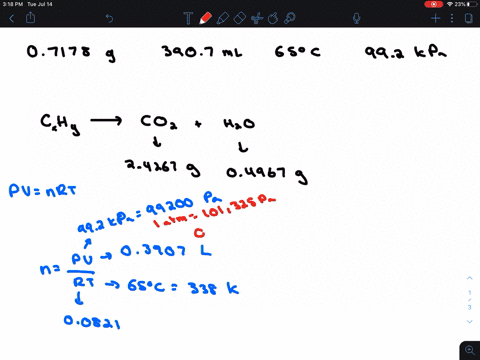 3:18 PM Tue Jul 14
23%
0.7178 g 390.7 mL 65°C 99.2 kPa
CxHy → CO2 + H2O
↓ ↓
2.4267 g 0.4967 g
PV=nRT
99.2 kPa = 99200 Pa
1 atm = 101,325 Pa
0
n= PV → 0.3907 L
RT → 65°C = 338 K
↓
0.0821
1
3